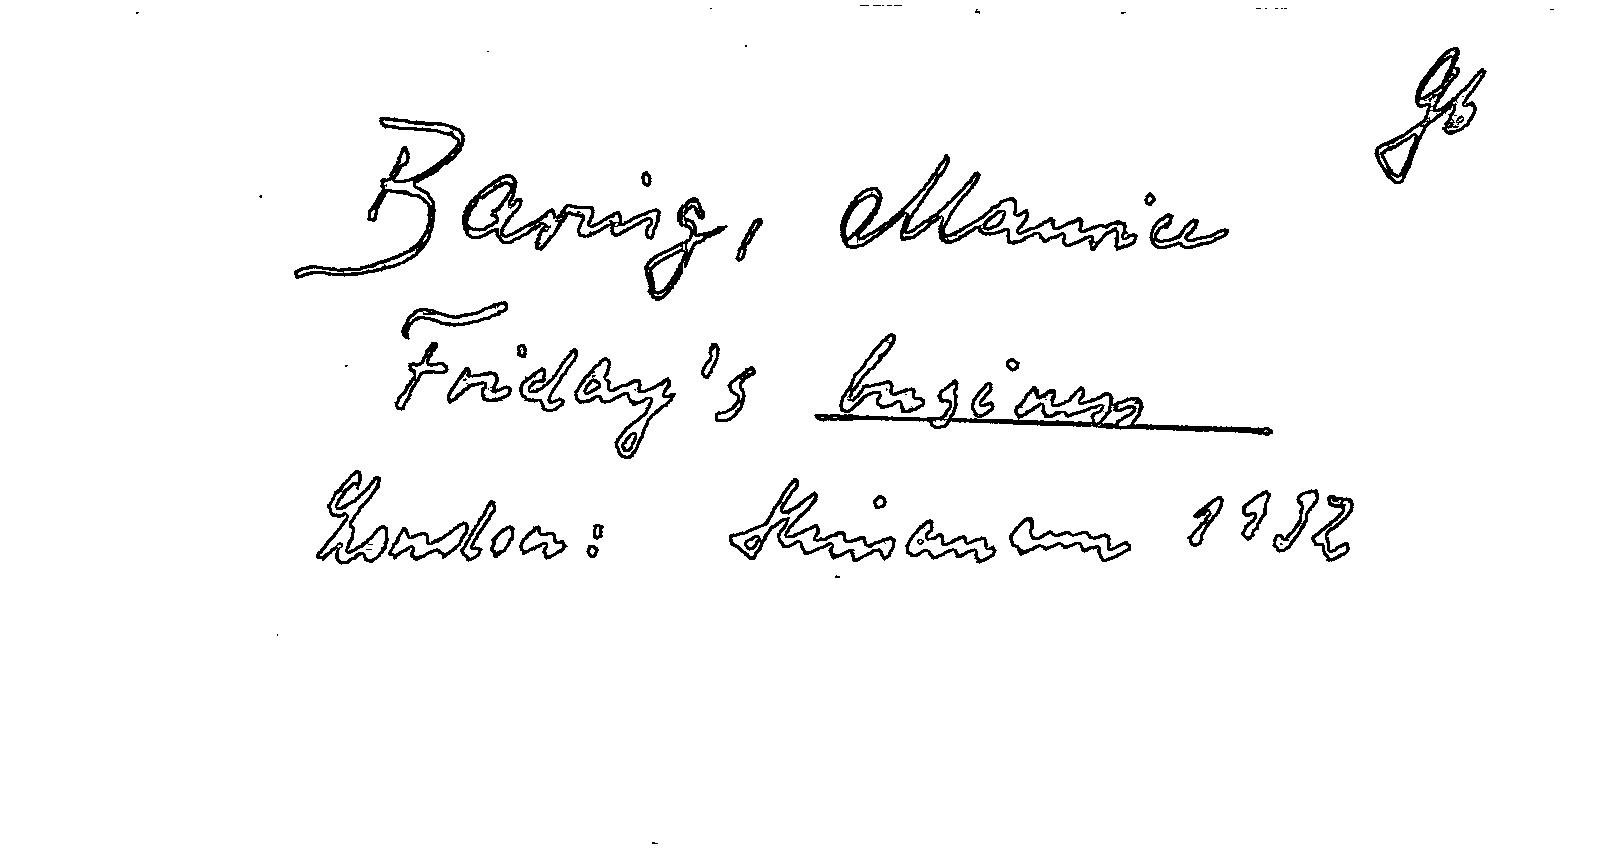 gb
Baring, Maurice
Friday's business
London: Heinemann 1932